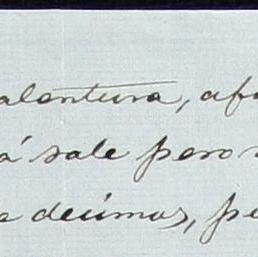 alentura, afo
á sale pero
e decimos, pe